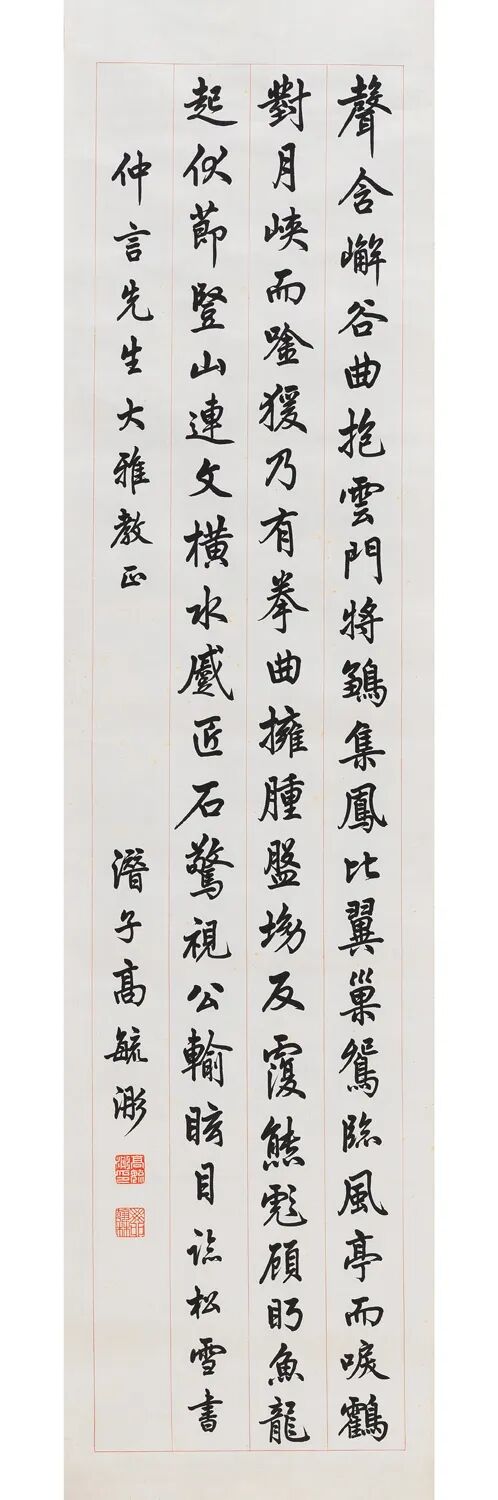 聲含嶰谷曲抱雲門將鶵集鳳比翼巢鴛臨風亭而唳鶴
對月峽而唫猨乃有拳曲擁腫盤坳反覆熊彪顧盻魚龍
起伏節豎山連文橫水蹙匠石驚視公輸眩目 松雪書
仲言先生大雅教正
潛子高毓浵